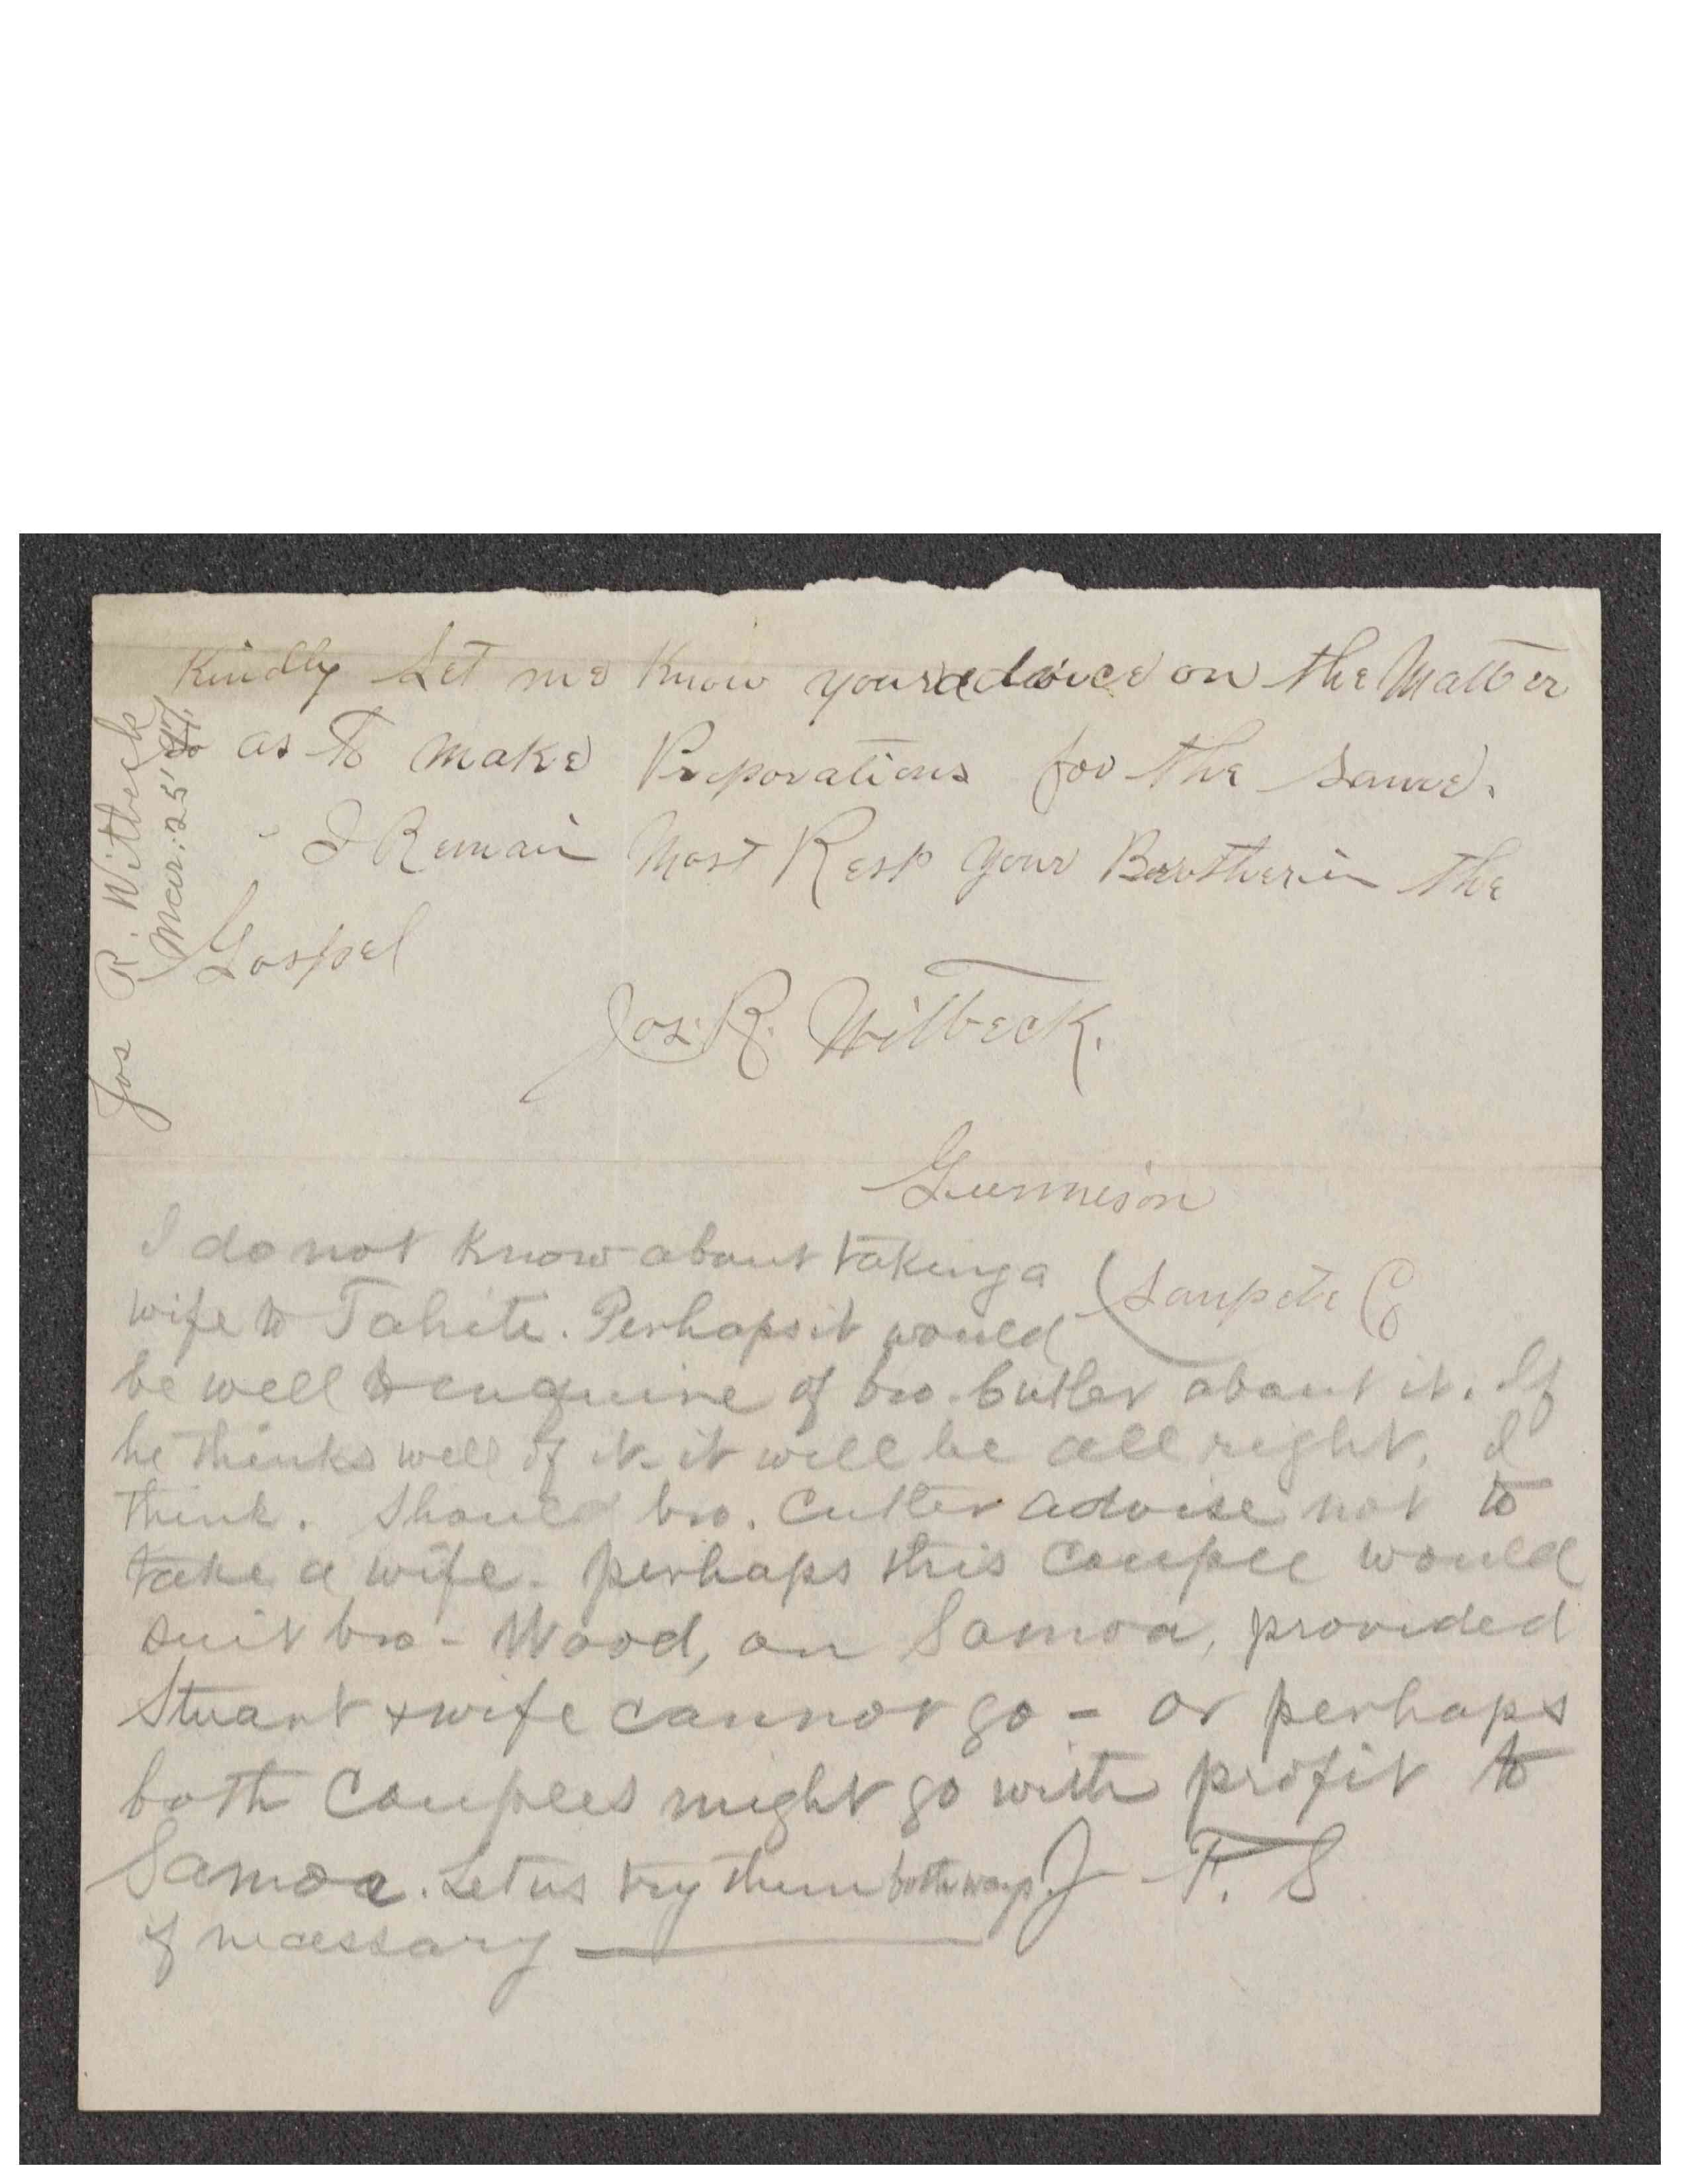 Kindly Let me Know your advice on the Matter
so as To make Preporations for the same.
I Remain Most Resp your Brother in the
Gospel
Jos. R. Witbeck.
Gunnison
Sanpete Co
Jos R. Witbeck
Mar: 25 '97.
I do not know about taking a
wife to Tahiti. Perhaps it would
be well to enquire of bro. Cutler about it. If
he thinks well of it it will be all right, I
think. Should bro. Cutler advise not to
take a wife. perhaps this couple would
suit bro - Wood, on Samoa, provided
Stuart & wife cannot go - or perhaps
both couples might go with profit to
Samoa. Let us try them both ways J. F. S
if necessary